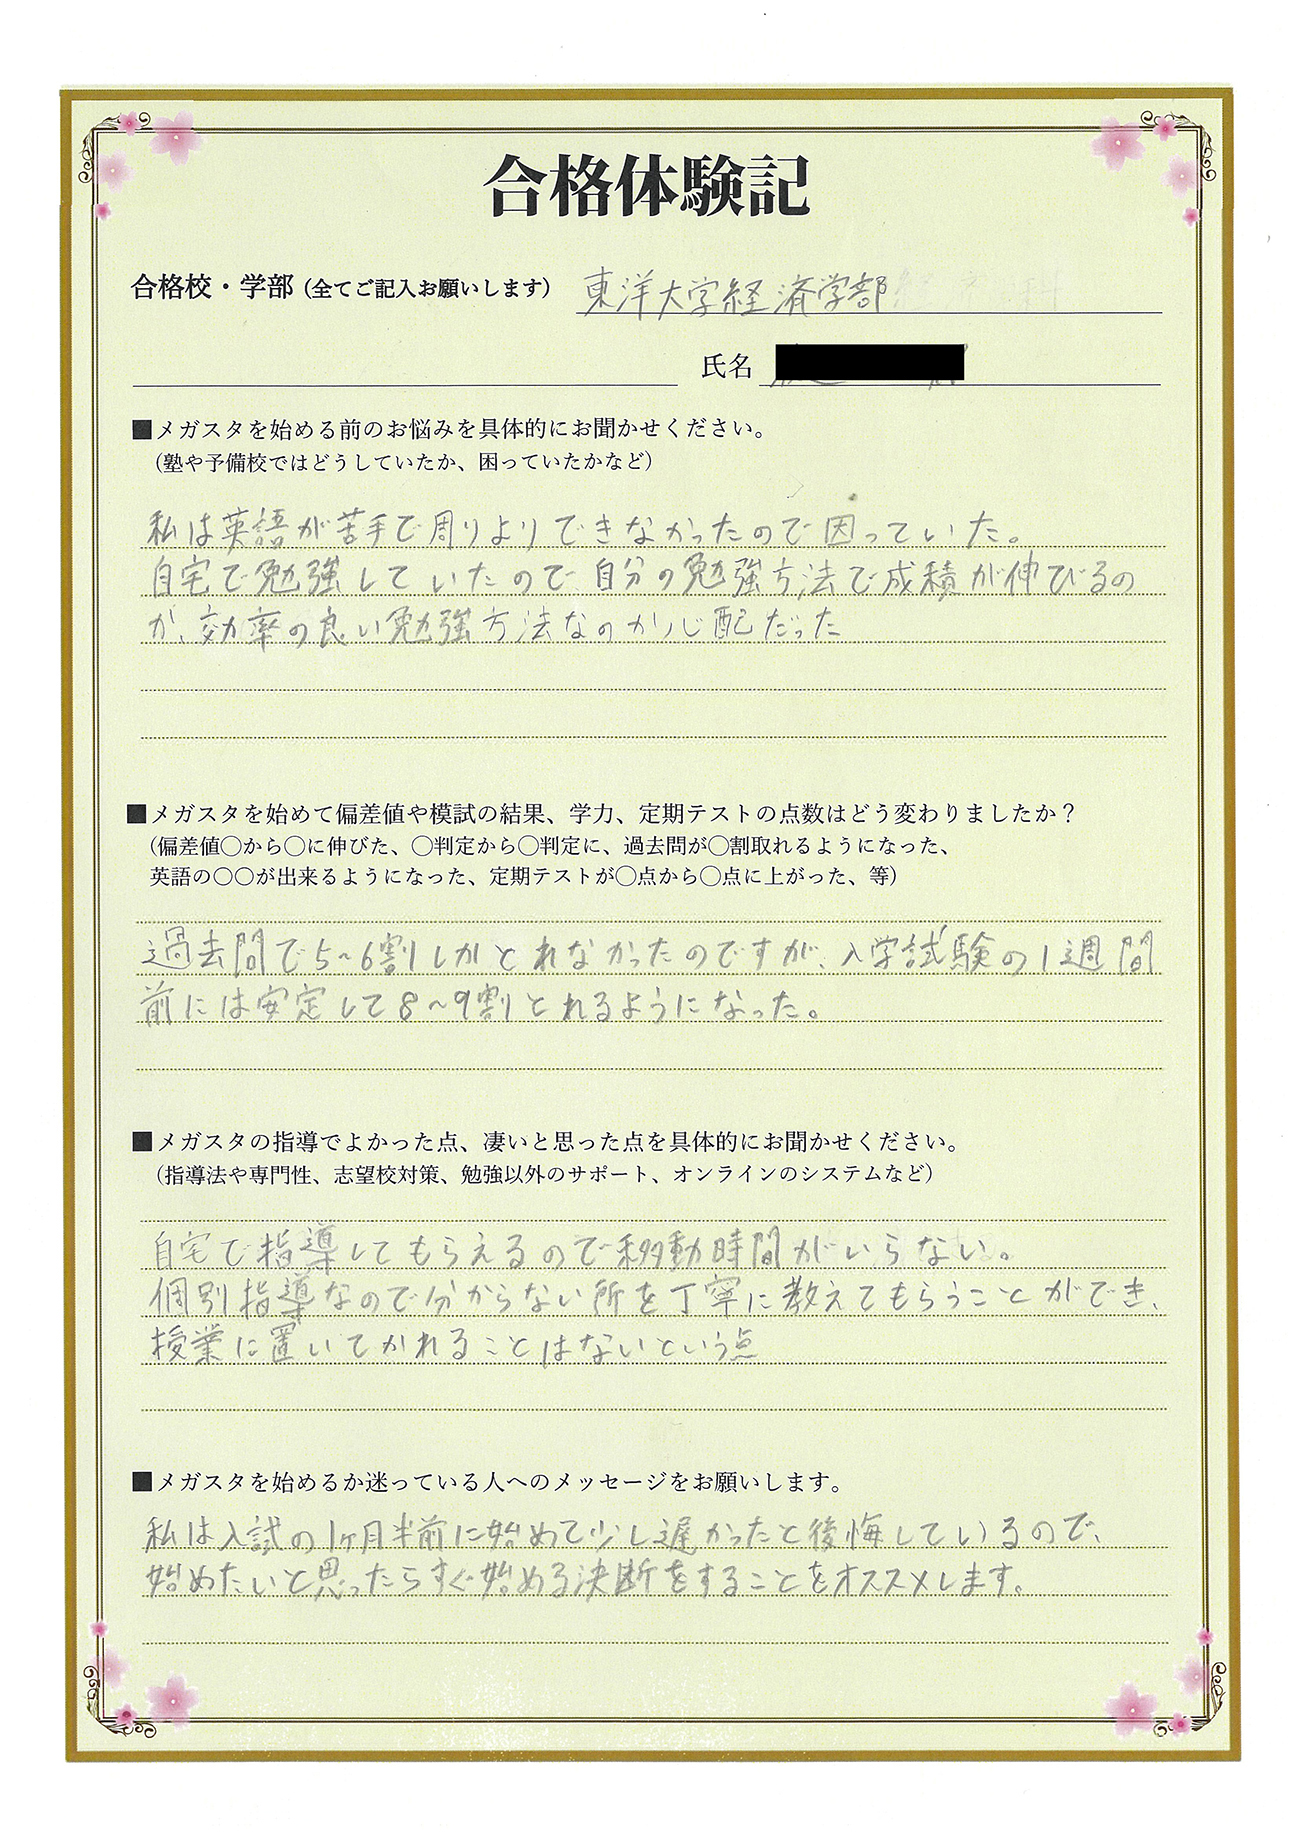 合格体験記
合格校・学部（全てご記入お願いします） 東洋大学経済学部
氏名
■メガスタを始める前のお悩みを具体的にお聞かせください。
（塾や予備校ではどうしていたか、困っていたかなど）
私は英語が苦手で周りよりできなかったので困っていた。
自宅で勉強していたので自分の勉強方法で成績が伸びるの
か、効率の良い勉強方法なのか心配だった
■メガスタを始めて偏差値や模試の結果、学力、定期テストの点数はどう変わりましたか？
（偏差値〇から〇に伸びた、〇判定から〇判定に、過去問が〇割取れるようになった、
英語の〇〇が出来るようになった、定期テストが〇点から〇点に上がった、等）
過去問で5~6割しかとれなかったのですが、入学試験の1週間
前には安定して8~9割とれるようになった。
■メガスタの指導でよかった点、凄いと思った点を具体的にお聞かせください。
（指導法や専門性、志望校対策、勉強以外のサポート、オンラインのシステムなど）
自宅で指導してもらえるので移動時間がいらない。
個別指導なので分からない所を丁寧に教えてもらうことができ、
授業に置いてかれることはないという点
■メガスタを始めるか迷っている人へのメッセージをお願いします。
私は入試の1ヶ月半前に始めて少し遅かったと後悔しているので、
始めたいと思ったらすぐ始める決断をすることをオススメします。